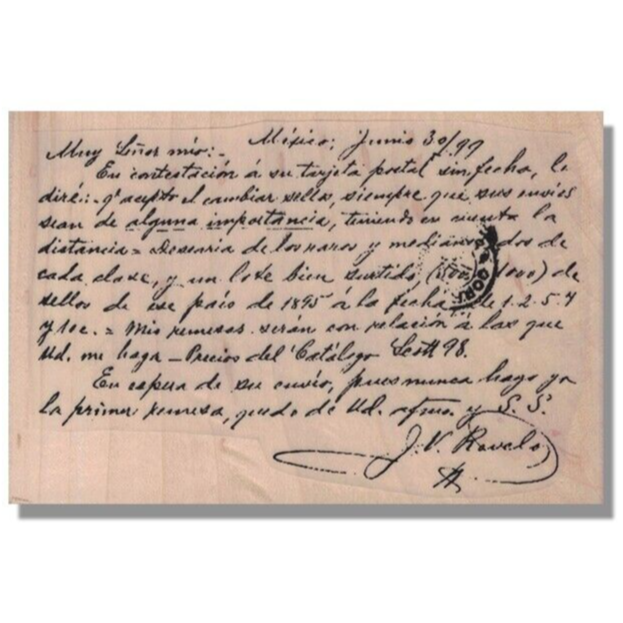 México, Junio 30/99
Muy Señor mío:-
En contestación á su tarjeta postal sin fecha, le
diré: - q' acepto el cambiar sellos, siempre que sus envíos
sean de alguna importancia, teniendo en cuenta la
distancia = Desearía de los raros y medianos dos de
cada clase, y un lote bien surtido (500 1000) de
sellos de ese país de 1895 á la fecha de 1.2.5.4
y 10c. = Mis remesas serán con relación á las que
Ud. me haga - Precios del Catálogo Scott 98.
En espera de su envío, pues nunca hago yo
la primer remesa, quedo de Ud. afmo. y S. S.
J. V. Ravelo